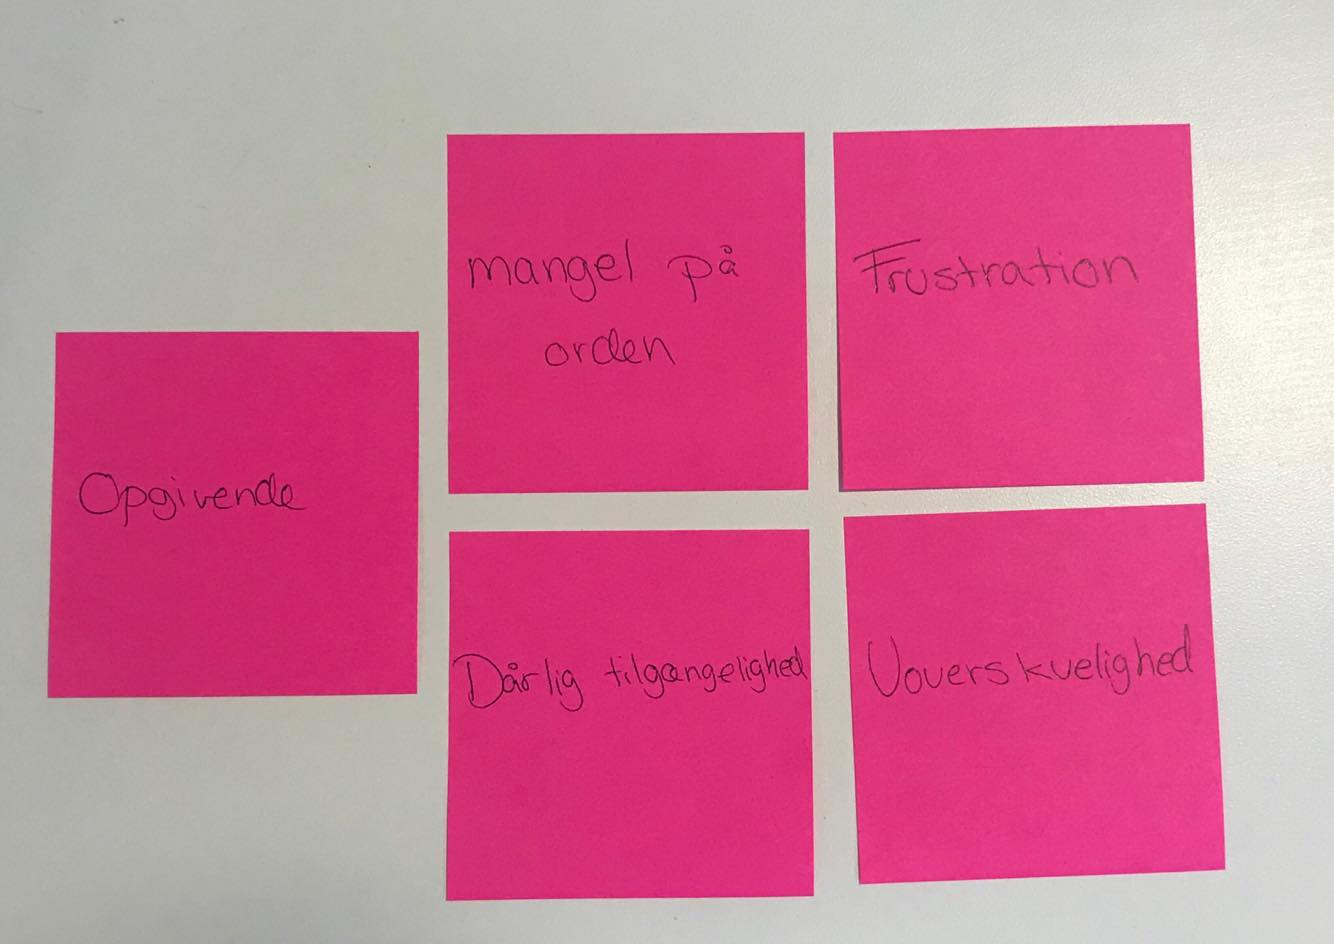 Opgivende
mangel på
orden
Frustration
Dårlig tilgængelighed
Uoverskuelighed